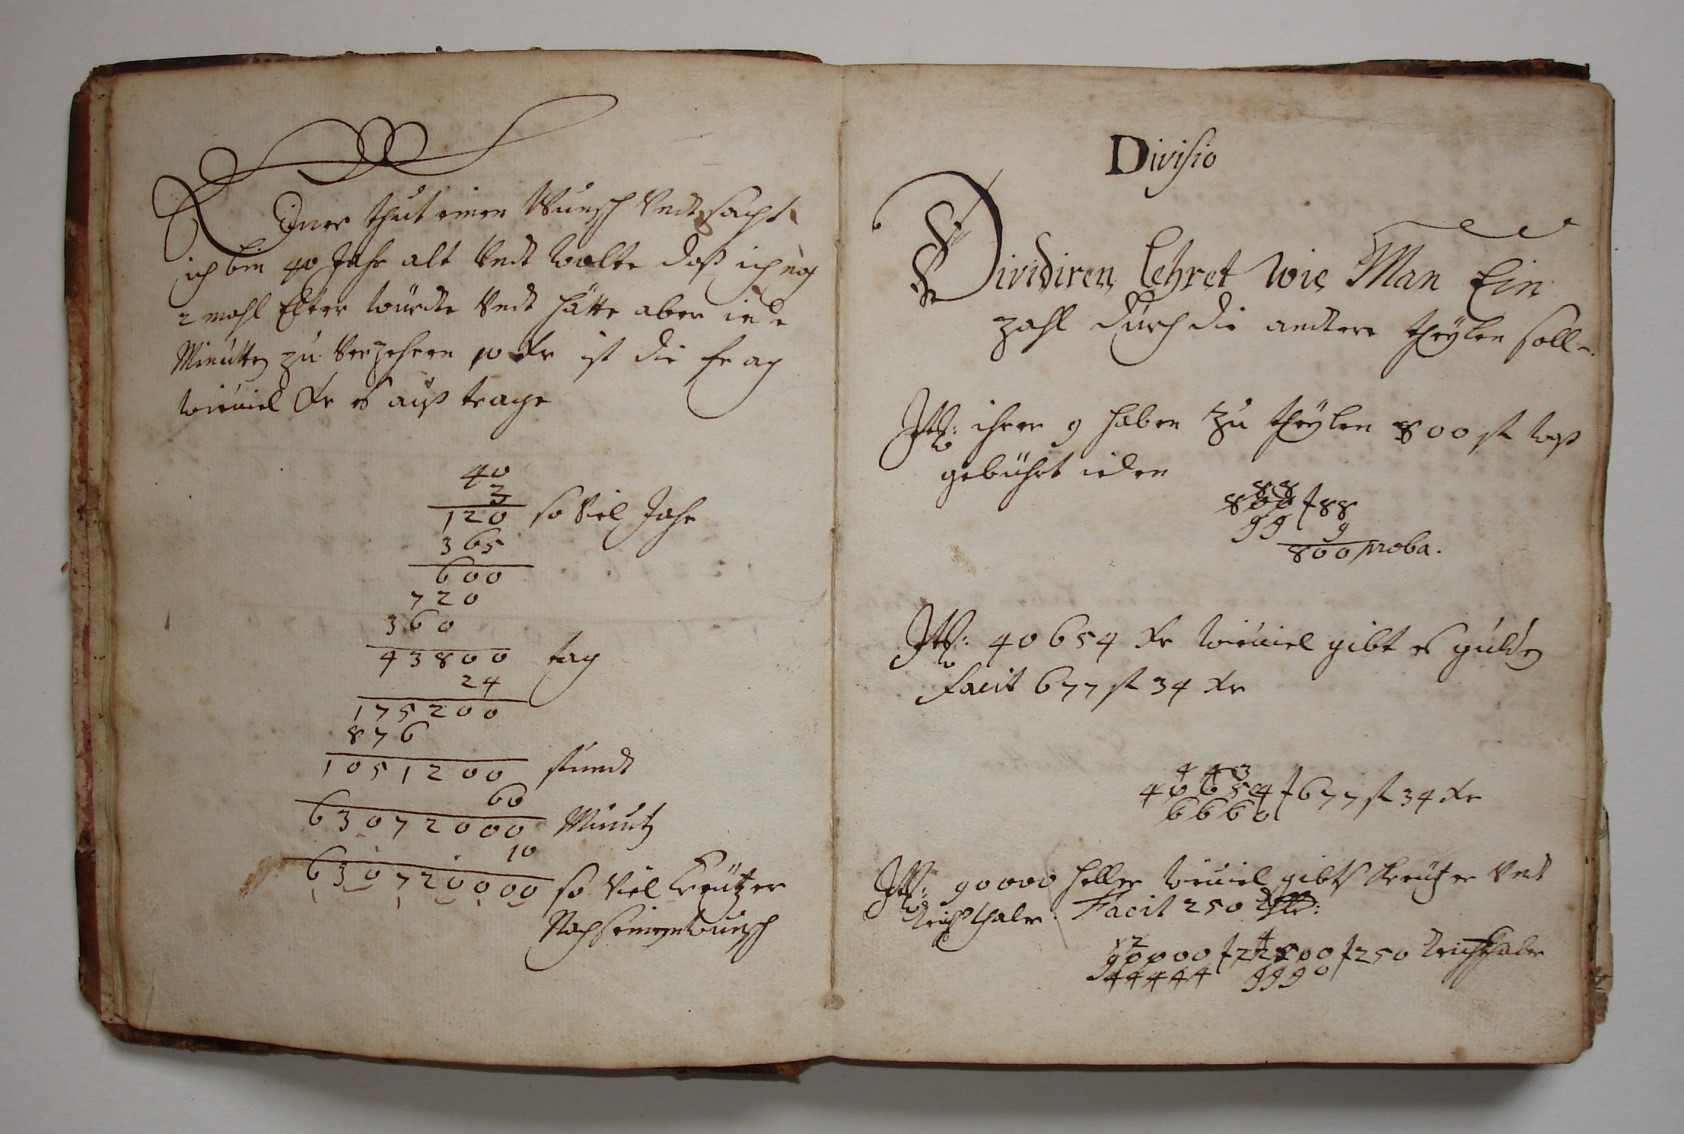 Einer thut einen Wunsch Undt sacht
ich bin 40 Jahr alt Undt wolte daß ich noch
2 mahl Elter würde Undt hätte aber iede
Minutten zu Verzehren 10 Xr ist die frag
wieviel Xr es auß trage
40
3
120 so Viel Jahr
365
600
720
360
43800 tag
24
175200
876
1051200 stundt
60
63072000 Minutz
10
630720000 so Viel Creützer
Nach seinem Wunsch
Divisio
Dividiren Lehret wie Man Ein
zahl durch die andere theylen soll
Itt: ihrer 9 haben zu theylen 800 fl waß
gebührt ieden
88
800 f 88
99 9
800 proba.
Itt: 40654 Xr wieviel gibt es gulden
Facit 677 fl 34 Xr
4 4 3
40654 f 677 fl 34 Xr
6660
Itt: 90000 heller wieviel gibts Kreutzer Undt
Reichsthaler: Facit 250
12 4
90000 f 22500 f 250 Reichsthaler
44444 9990